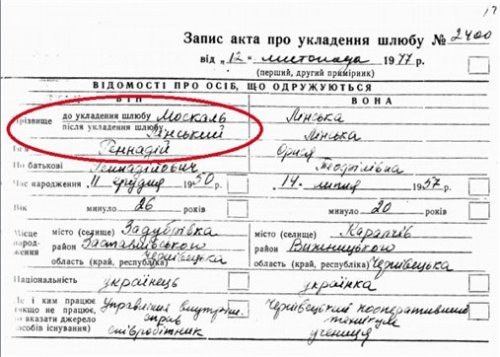 Запис акта про укладення шлюбу № 2400
від „12“ листопада 1977 р.
(перший, другий примірник)
ВІДОМОСТІ ПРО ОСІБ, ЩО ОДРУЖУЮТЬСЯ
ВІН ВОНА
Прізвище до укладення шлюбу Москаль Лінська
після укладення шлюбу Лінська
Геннадій
По батькові Геннадійович Теофілівна
Час народження 11 грудня 1950 14 липня 1957
Вік минуло 26 років минуло 20 років
Місце народження місто (селище) Задубрівка місто (селище) Карапчів
район Заставнівського район Вижницького
область (край, республіка) Чернівецька область (край, республіка) Чернівецька
Національність українець українка
Де і ким працює Управління внутрішн. Чернівецький кооперативний
якщо не працює, справ технікум
вказати джерело співробітник учениця
засобів існування)